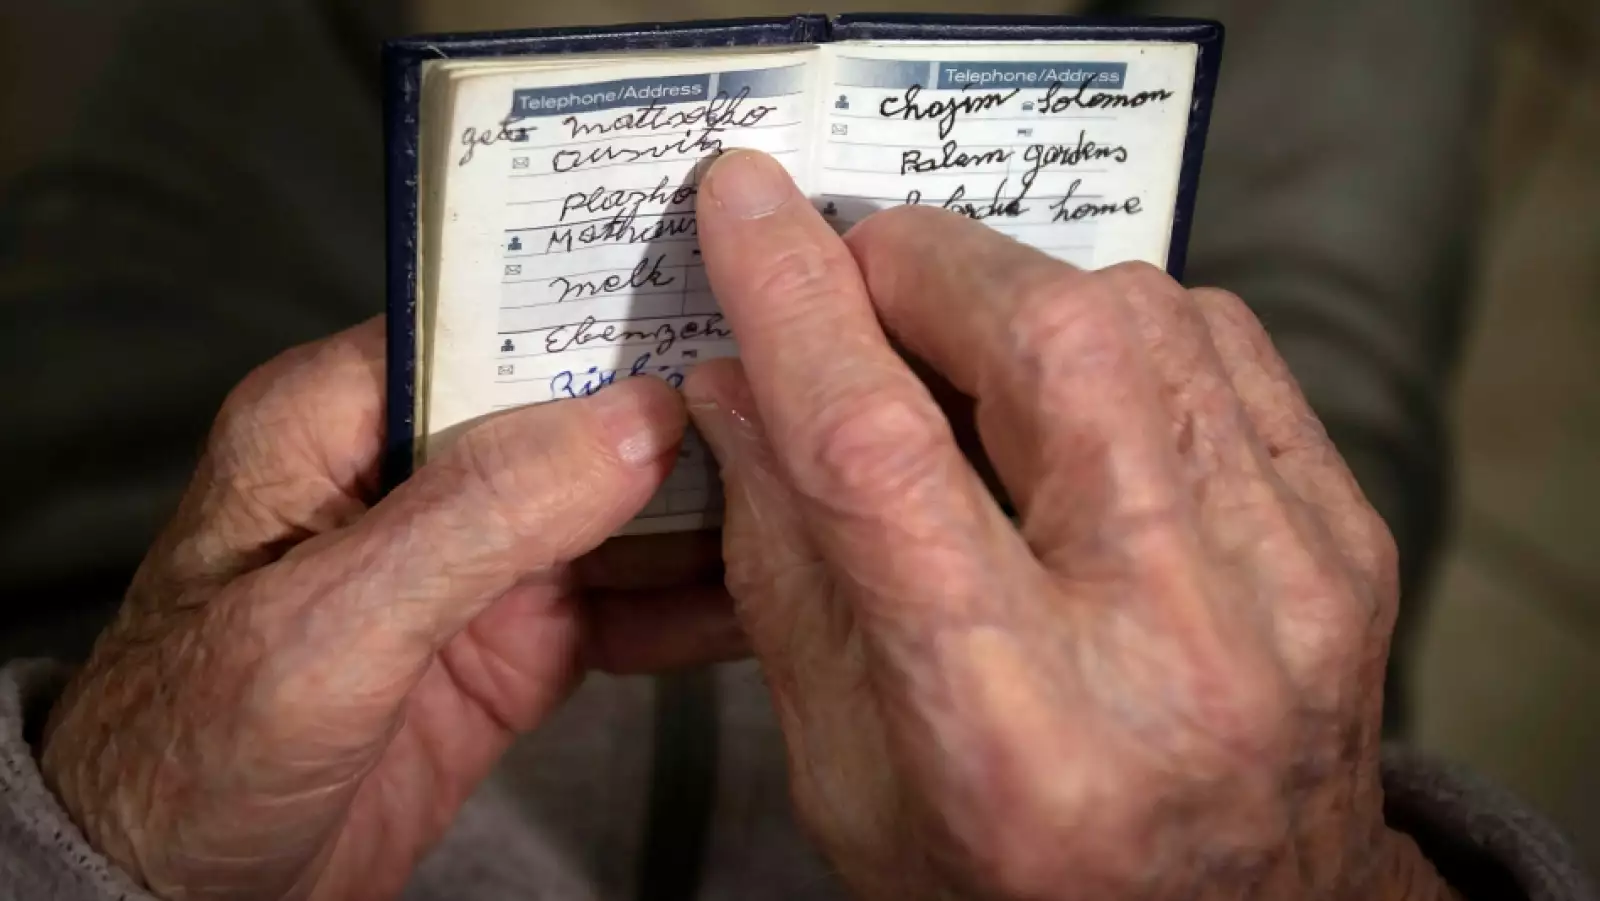 Telephone/Address
geto Mattsobho
Ausvitz
Plazho
Mathaus
Melk
Ebenzeh
Telephone/Address
Chajim Solomon
Balam gardens
home